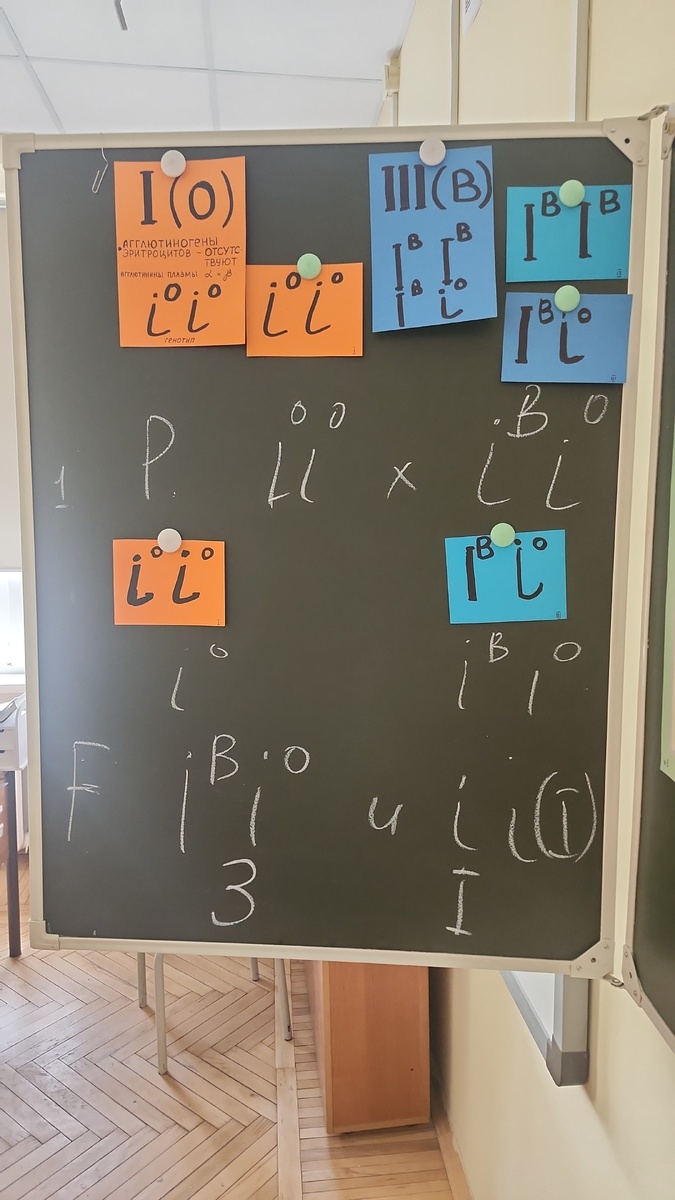 I(O)
• АГГЛЮТИНОГЕНЫ
ЭРИТРОЦИТОВ – ОТСУТС
ТВУЮТ
АГГЛЮТИНИНЫ ПЛАЗМЫ α и β
i⁰ i⁰
ГЕНОТИП
i⁰ i⁰
III(B)
Iᴮ Iᴮ
Iᴮ i⁰
Iᴮ Iᴮ
Iᴮ i⁰
1 P. i⁰ i⁰ x iᴮ i⁰
i⁰ i⁰ Iᴮ i⁰
i⁰ iᴮ i⁰
F iᴮ i⁰ и i i (I)
3 I